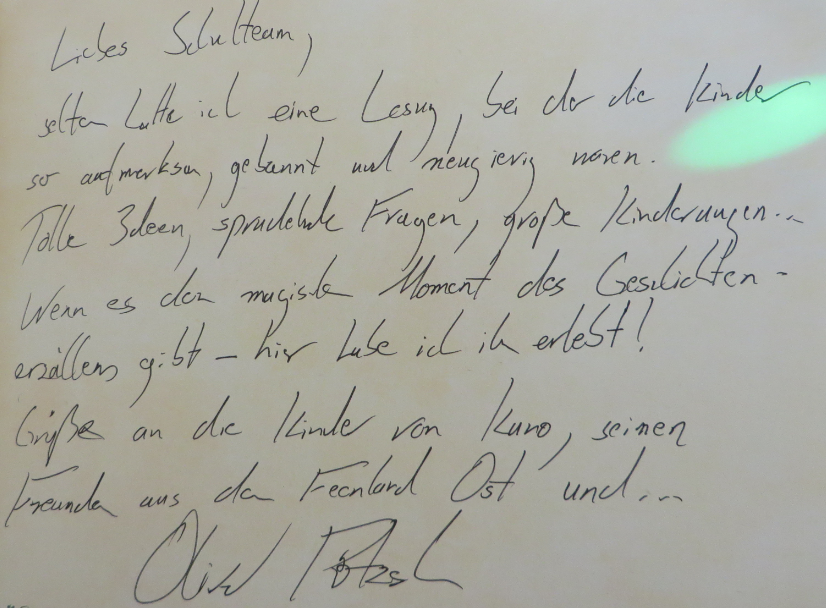 Liebes Schulteam,
selten hatte ich eine Lesung, bei der die Kinder
so aufmerksam, gebannt und neugierig waren.
Tolle Ideen, sprudelnde Fragen, große Kinderaugen...
Wenn es den magischen Moment des Geschichten-
erzählens gibt – hier habe ich ihn erlebt!
Grüße an die Kinder von Kuno, seinen
Freunden aus dem Feenland Ost und...
Oliver Pötzsch